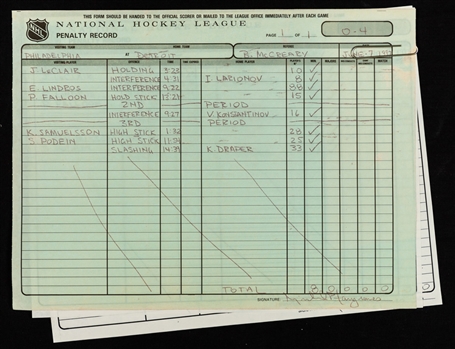 THIS FORM SHOULD BE HANDED TO THE OFFICIAL SCORER OR MAILED TO THE LEAGUE OFFICE IMMEDIATELY AFTER EACH GAME
NHL NATIONAL HOCKEY LEAGUE
PENALTY RECORD PAGE 1 of 1 0-4
VISITING TEAM HOME TEAM REFEREE
PHILADELPHIA AT DETROIT B. MCCREARY JUNE 7
VISITING PLAYER OFFENSE TIME HOME PLAYER
J. LECLAIR HOLDING 10 ✓
INTERFERENCE 4:31 I. LARIONOV 8 ✓
E. LINDROS INTERFERENCE 9:22 88 ✓
P. FALLOON HOLD STICK 15 ✓
2ND PERIOD
INTERFERENCE 9:27 V. KONSTANTINOV 16 ✓
3RD PERIOD
K. SAMUELSSON HIGH STICK 28 ✓
S. PODEIN HIGH STICK 25 ✓
SLASHING K. DRAPER 33 ✓
TOTAL 8 0 0 0 0
SIGNATURE